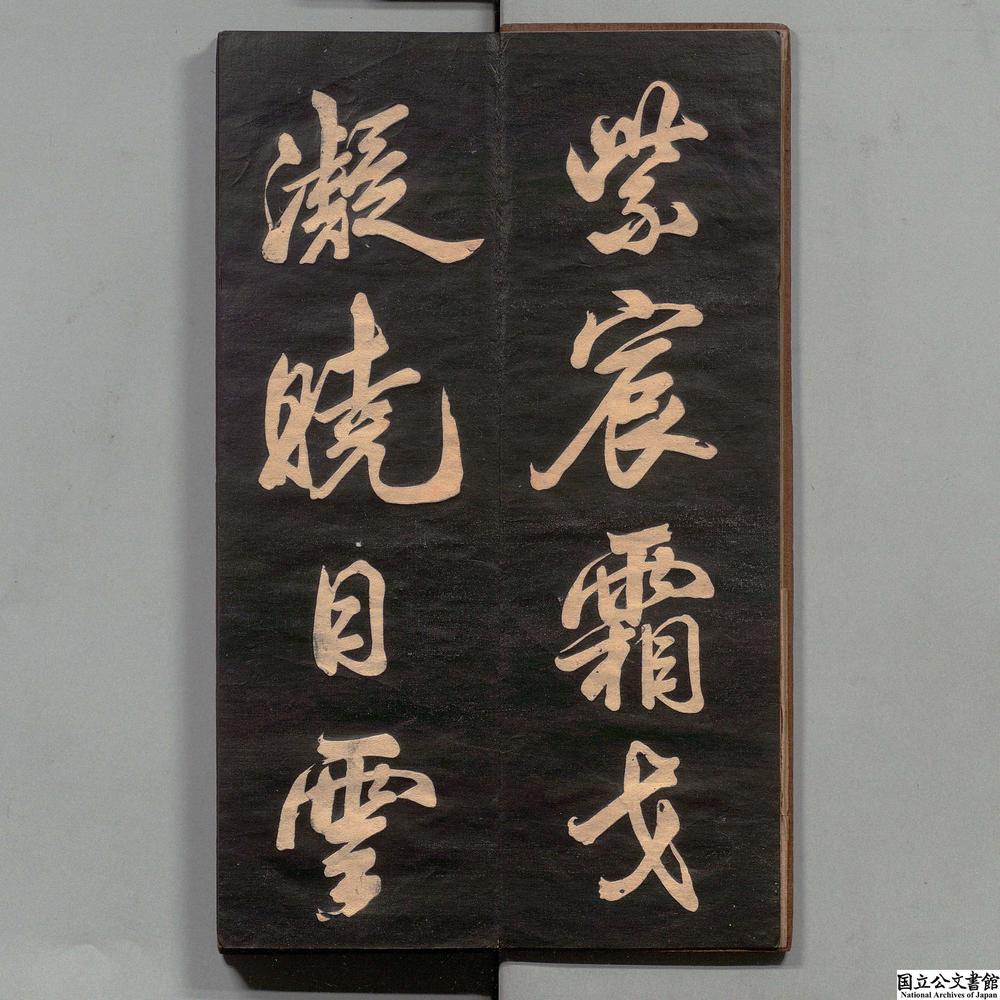 紫宸霜戈
凝曉目雲
国立公文書館
National Archives of Japan